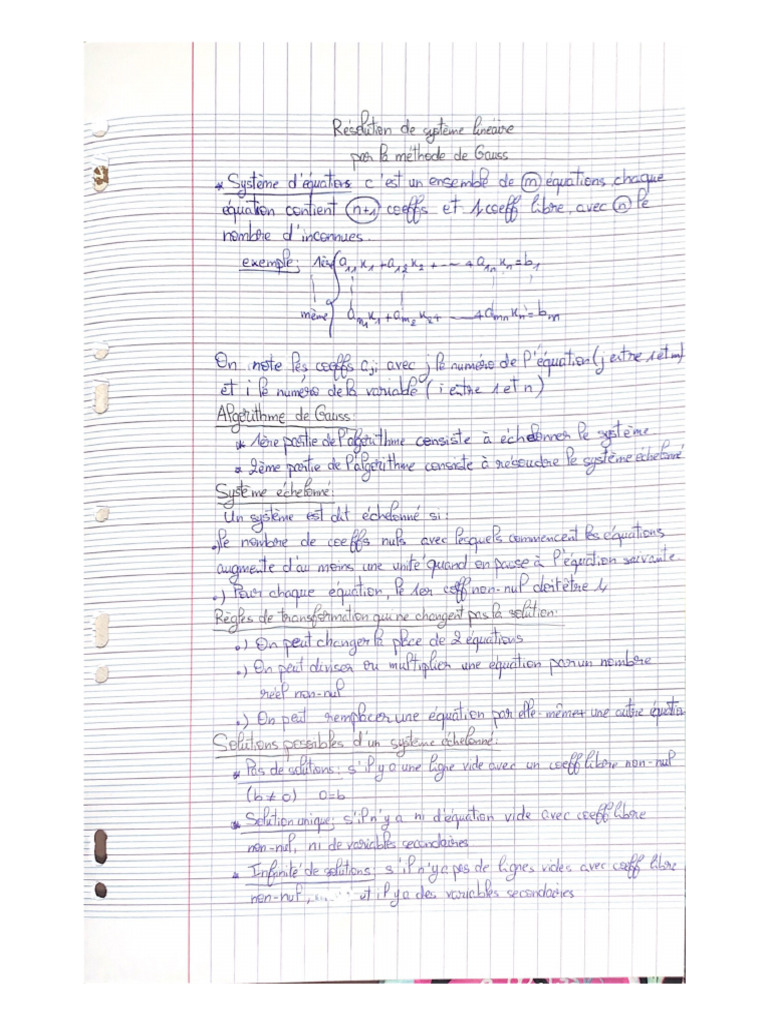 Résolution de système linéaire
par la méthode de Gauss
* Système d'équations c'est un ensemble de m équations, chaque
équation contient n+1 coeffs et 1 coeff libre, avec n le
nombre d'inconnues.
exemple: 1ère { a₁₁x₁ + a₁₂x₂ + --- + a₁ₙxₙ = b₁
mème { aₘ₁x₁ + aₘ₂x₂ + --- + aₘₙxₙ = bₘ
On note les coeffs aⱼᵢ avec j le numéro de l'équation (j entre 1 et m)
et i le numéro de la variable (i entre 1 et n)
Algorithme de Gauss:
* 1ère partie de l'algorithme consiste à échelonner le système
* 2ème partie de l'algorithme consiste à résoudre le système échelonné
Système échelonné:
Un système est dit échelonné si:
.le nombre de coeffs nuls avec lesquels commencent les équations
augmente d'au moins une unité quand on passe à l'équation suivante.
.) Pour chaque équation, le 1er coeff non-nul doit être 1
Règles de transformation qui ne changent pas la solution:
.) On peut changer la place de 2 équations
.) On peut diviser ou multiplier une équation par un nombre
réel non-nul
.) On peut remplacer une équation par elle-même + une autre équation
Solutions possibles d'un système échelonné:
* Pas de solutions: s'il y a une ligne vide avec un coeff libre non-nul
(b ≠ 0) 0=b
* Solution unique: s'il n'y a ni d'équation vide avec coeff libre
non-nul, ni de variables secondaires
* Infinité de solutions: s'il n'y a pas de lignes vides avec coeff libre
non-nul, et il y a des variables secondaires